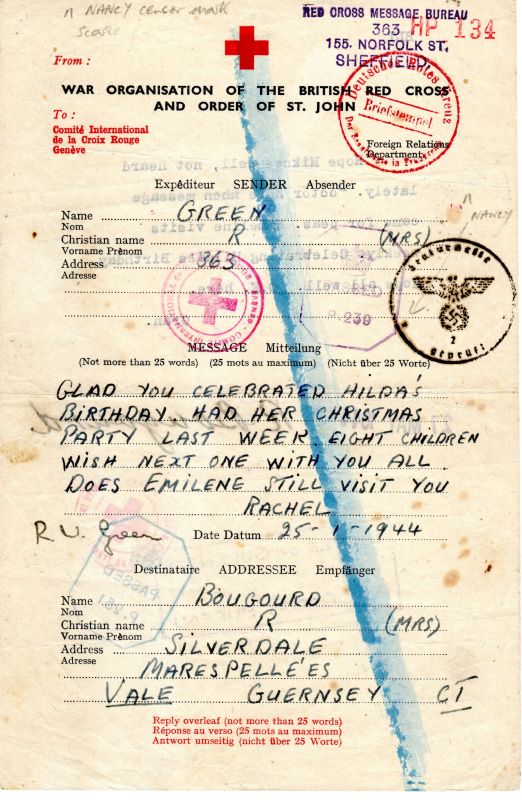 A NANCY censor mark
RED CROSS MESSAGE BUREAU
363
155. NORFOLK ST,
SHEFFIELD.
HP 134
From :
WAR ORGANISATION OF THE BRITISH RED CROSS
AND ORDER OF ST. JOHN
To :
Comité International
de la Croix Rouge
Genève
Deutsches Rotes Kreuz
Briefstempel
Foreign Relations
Department.
Expéditeur SENDER Absender
Name GREEN
Nom
Christian name R (MRS)
Vorname Prénom
Address 363
Adresse
A
NANCY
239
2
Geprüft
MESSAGE Mitteilung
(Not more than 25 words) (25 mots au maximum) (Nicht über 25 Worte)
GLAD YOU CELEBRATED HILDA'S
BIRTHDAY. HAD HER CHRISTMAS
PARTY LAST WEEK. EIGHT CHILDREN
WISH NEXT ONE WITH YOU ALL
DOES EMILENE STILL VISIT YOU
RACHEL
R. W. Green
Date Datum 25-1-1944
PASSED
Destinataire ADDRESSEE Empfänger
Name BOUGOURD
Nom
Christian name R (MRS)
Vorname Prènom
Address SILVERDALE
Adresse
MARESPELLÉES
VALE GUERNSEY CI
Reply overleaf (not more than 25 words)
Réponse au verso (25 mots au maximum)
Antwort umseitig (nicht über 25 Worte)